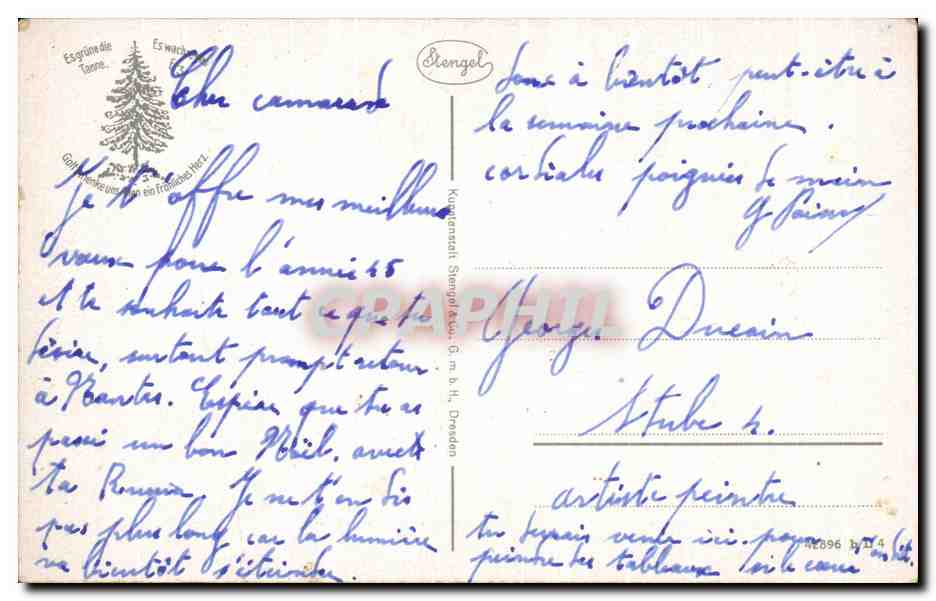 Es grüne die
Tanne..
Es wach
Gott schenke uns allen ein Fröhliches Herz.
Stengel
Cher camarade
Je t'offre mes meilleurs
vœux pour l'année 45
et te souhaite tout ce que tu
désire, surtout prompt retour
à Nantes. Espère que tu as
passé un bon Noël. avec
ta Je ne t'en dis
pas plus long car la lumière
va bientôt s'éteindre.
Kunstanstalt Stengel & Co. G. m. b. H., Dresden
donc à bientôt peut-être à
la semaine prochaine.
cordiales poignées de main
G
Georges
Stube 4.
artiste peintre
tu devrais venir ici pour
peindre des tableaux si le cœur t'en dit.
42896
CPAPHIL